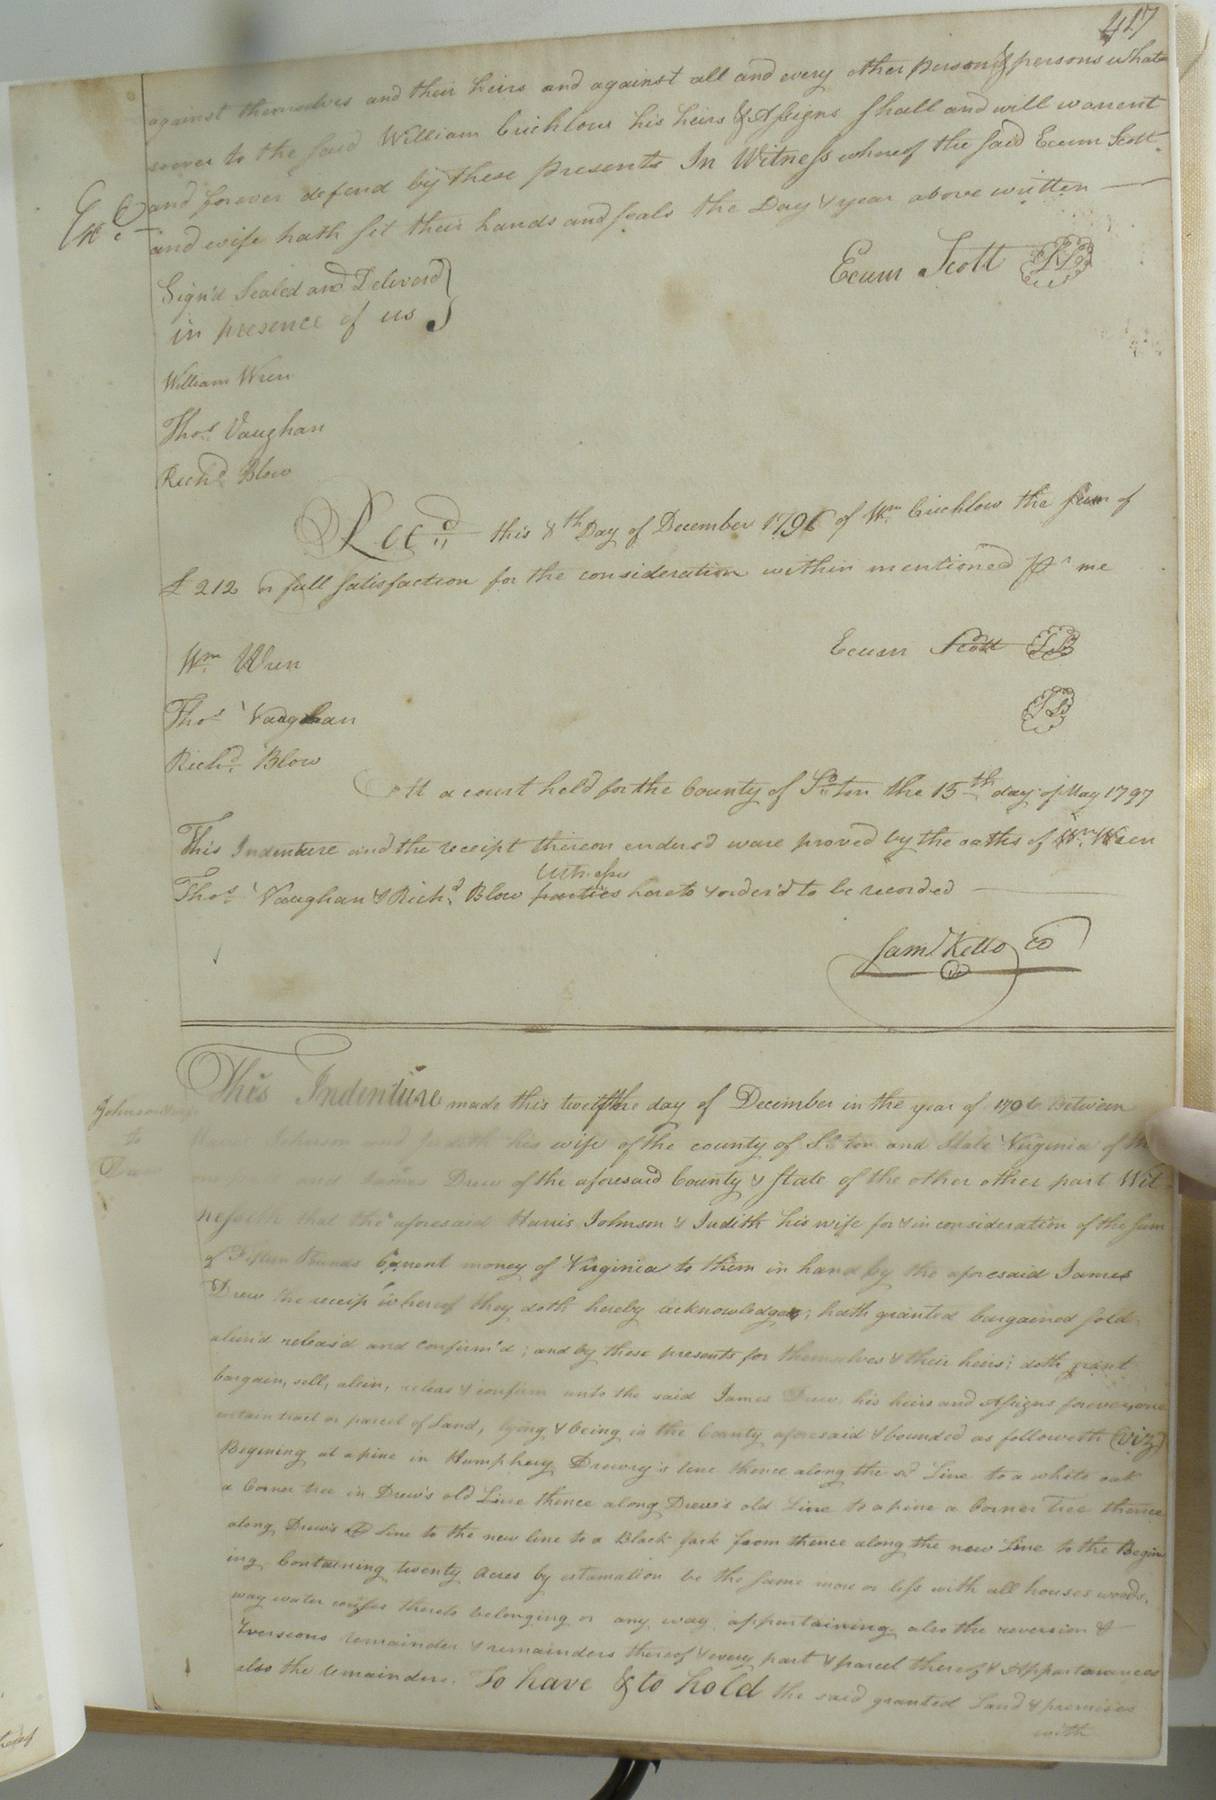 417
against themselves and their heirs and against all and every other person & persons what
soever to the said William Crichlow his heirs & Assigns shall and will warrent
and forever defend by these presents In Witness whereof the said Exum Scott
and wife hath set their hands and seals the Day & year above written
Exum Scott
Sign'd Sealed and Deliverd
in presence of us
William Wren
Thos. Vaughan
Richd. Blow
Recd. this 8th Day of December 1796 of Wm. Crichlow the sum of
£ 212 in full satisfaction for the consideration within mentioned pr me
Exum Scott
Wm. Wren
Thos. Vaughan
Richd. Blow
At a court held for the County of So.ton the 15th day of May 1797
This Indenture and the receipt thereon endursd ware proved by the oaths of Wm. Wren
Witnesses
Thos. Vaughan & Richd. Blow parties hereto & order'd to be recorded
Saml. Kello CC
Johnson
to
Drew
This Indenture made this twelfth day of December in the year of 1796 Between
Harris Johnson and Judith his wife of the county of So.ton and State Virginia of the
one part and James Drew of the aforesaid County & State of the other other part Wit
nesseth that the aforesaid Harris Johnson & Judith his wife for & in consideration of the sum
of Fifteen Pounds Current money of Virginia to them in hand by the aforesaid James
Drew the receip whereof they doth hereby acknowledge; hath granted bargained sold
alien'd releas'd and confirm'd; and by these presents for themselves & their heirs; doth grant
bargain, sell, alein, releas & confirm unto the said James Drew his heirs and Assigns forever, one
certain tract or parcel of Land, lying & being in the County aforesaid & bounded as followeth (viz)
Begining at a pine in Humphrey Drewry's line thence along the sd Line to a white oak
a Corner tree in Drew's old Line thence along Drew's old Line to a pine a Corner Tree thence
along Drew's Line to the new line to a Black Jack from thence along the new Line to the Begin
ing Containing twenty Acres by estamation be the same more or less with all houses woods,
way water corses thereto belonging or any way appartaining also the reversion &
reversions remainder & remainders thereof & every part & parcel thereof & Appartanances
also the remainders. To have & to hold the said granted Land & premises
with